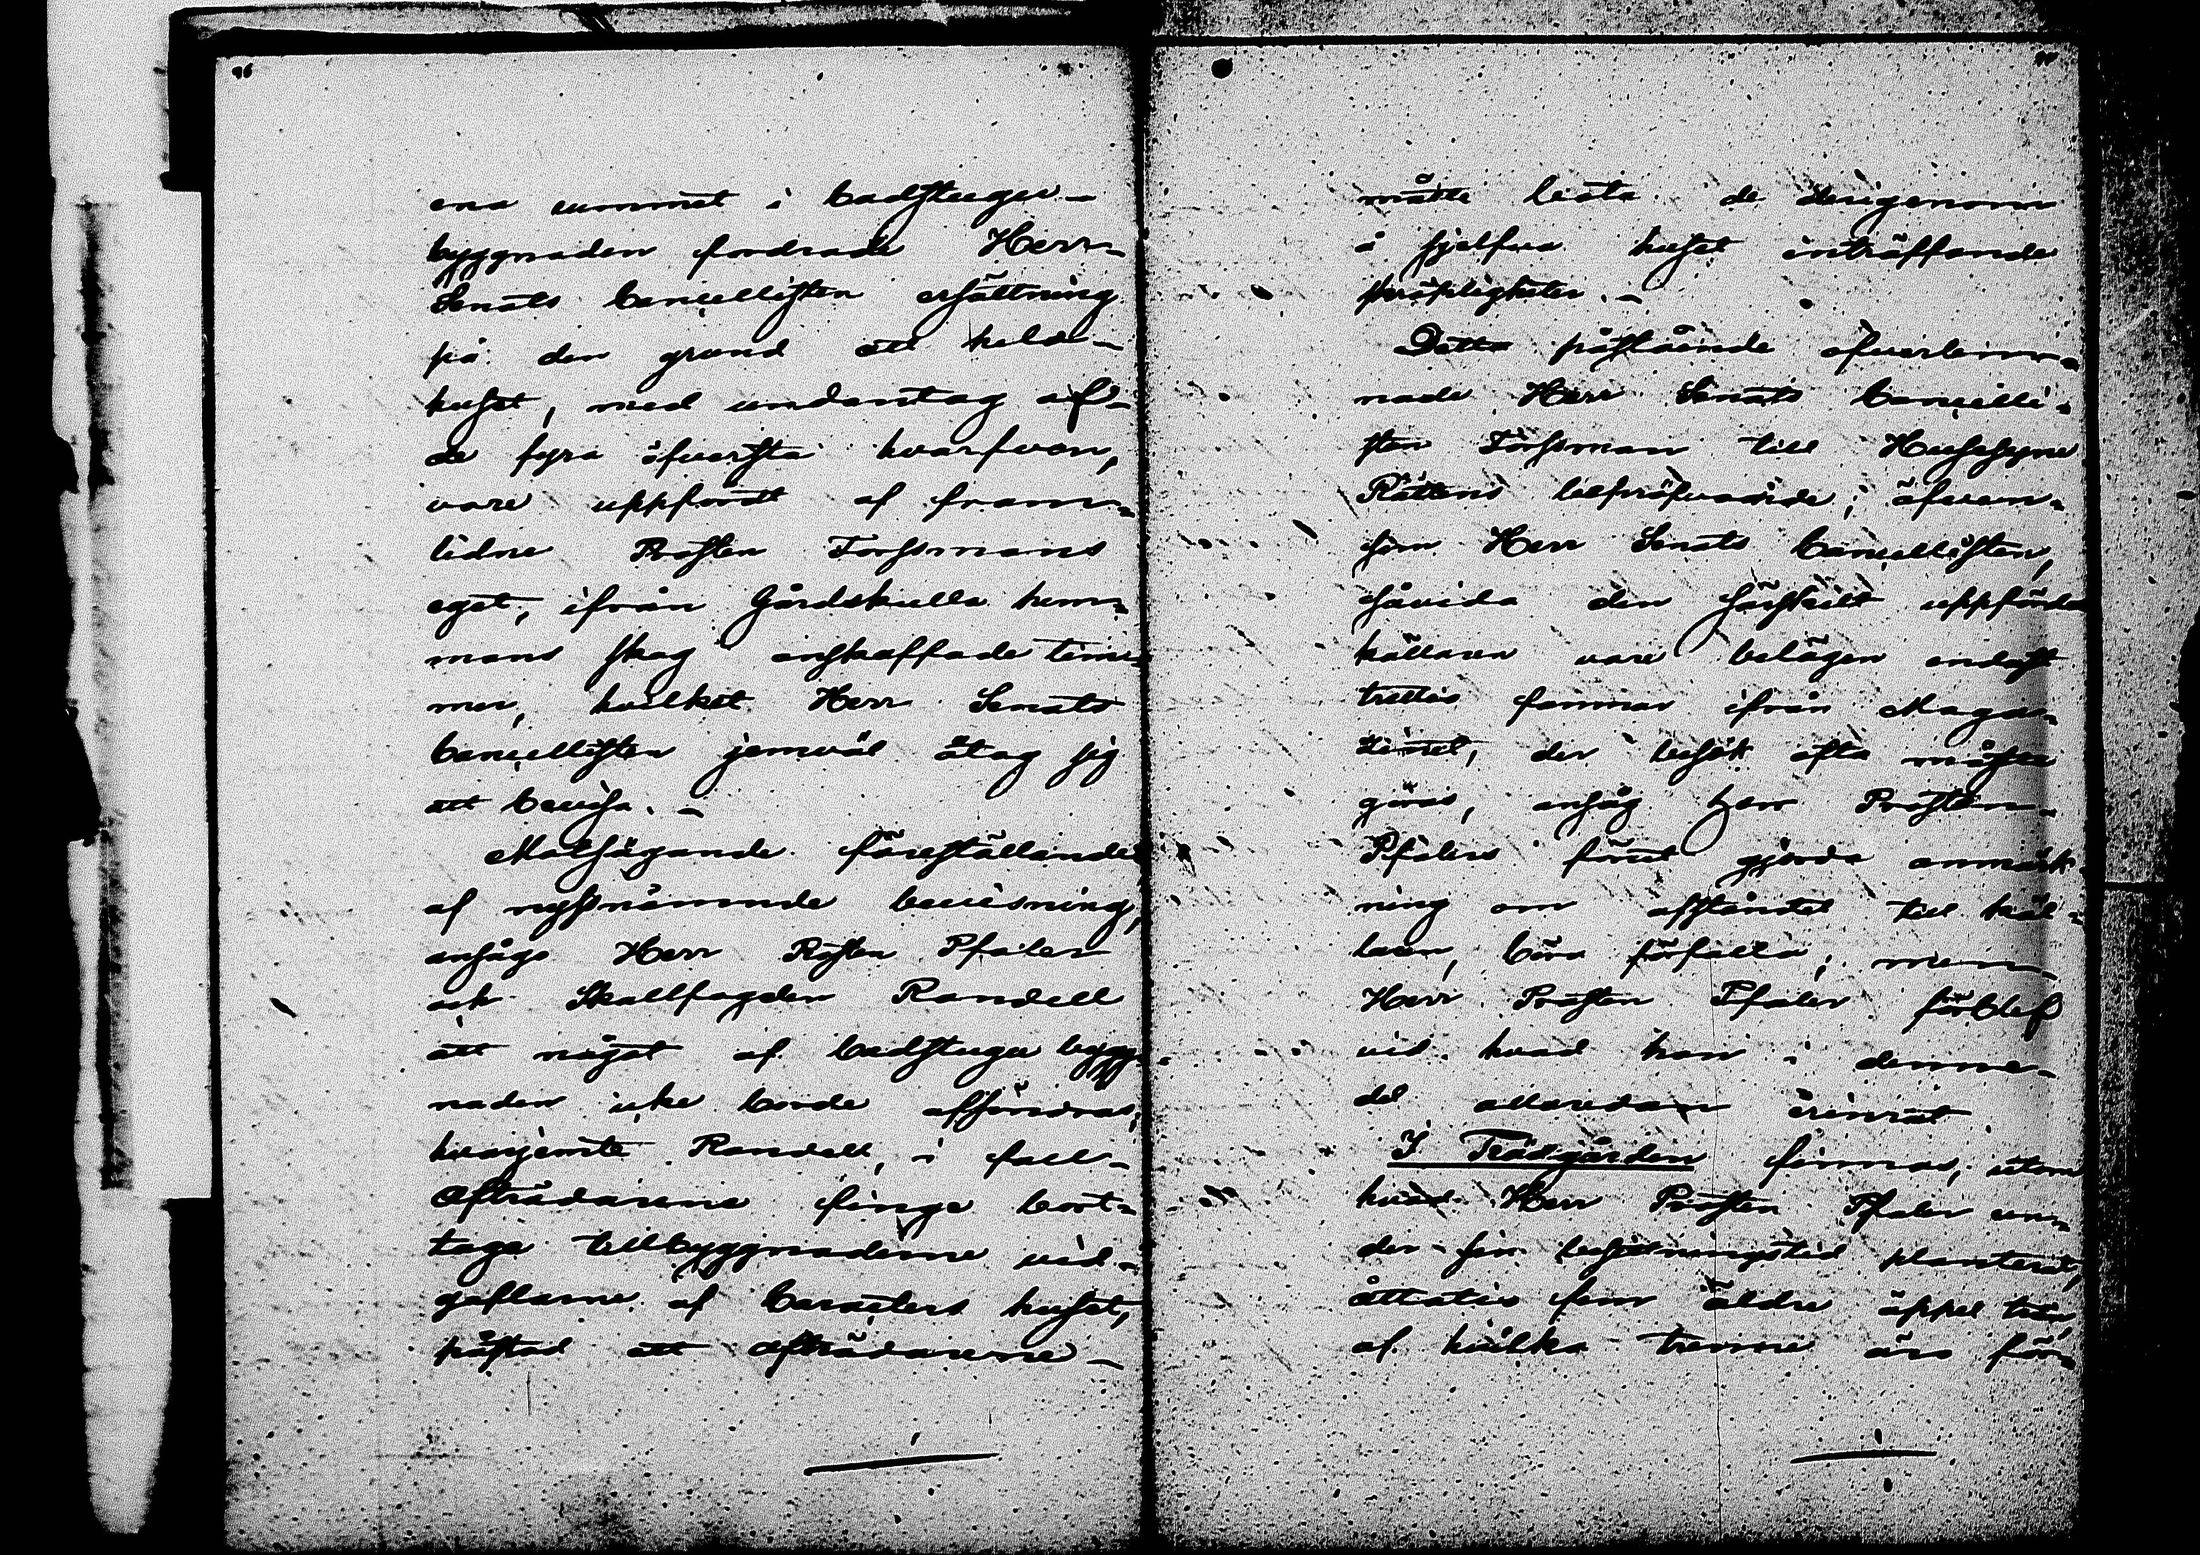 ena rummet i badstugu-
byggnaden fordrade Herr
Senats Cancellisten ersättning
på den grund att hela-
huset, med undantag af-
de fyra öfversta hvarfven,
vore uppfördt af fram-
lidne Prosten Forssmans
eget, ifrån Gårdskulla hem-
mans skog anskaffade tim-
mer, hvilket Herr Senats
Cancellisten jemväl åtog sig
att bevisa. -
Målsägande föreställande
af nyssnämnde bevisning,
ansågs Herr Prosten Pfaler
och Skallfogden Randell
att något af badstugu bygg-
naden icke borde affordras,
hvarjemte Randell, i fall-
Afträdarene finge bort-
taga tillbyggnaderne vid-
gaflarne af Caracters huset,
påstod att afträdarerne-
måtte bota de derigenom
å sjelfva huset inträffande
bräckligheter. -
Detta påstående öfverlem-
nade Herr Senats Cancelli-
sten Forssman till Husesyns
Rättens bepröfvande; äfven-
som Herr Senats Cancellisten,
såvida den särskilt uppförda
källaren vore belägen endast
trettio famnar ifrån Maga-
zinet, der besök ofta måste
göras, ansåg Herr Prosten
Pfalers förut gjorda anmärk-
ning om afståndet till käl-
laren, böra förfalla; men-
Herr Prosten Pfaler förblef
vid hvad han i denna
del allaredan erinrat
I Trädgården finnas, utom
hvad Herr Prosten Pfaler un-
der sin besittningstid planterat,
åttatio fem äldre äppel träd
af hvilka trenne äro för-